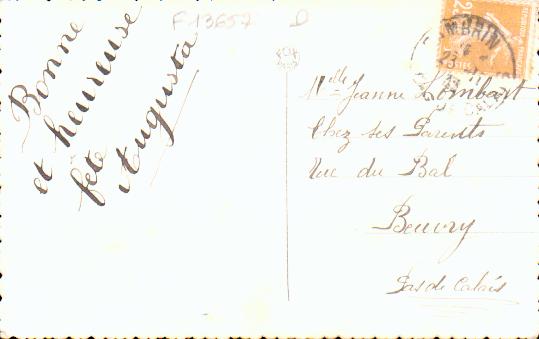 F 13657 D
Bonne
et heureuse
fête
Augusta
Mlle Jeanne Lombart
Chez ses Parents
Rue du Bal
Beuvry
Pas de Calais
CAMBRIN
25